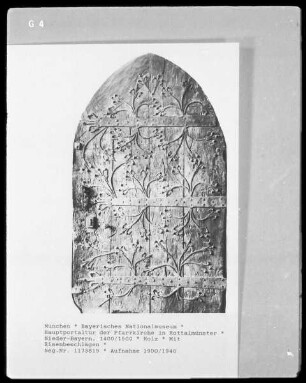 G 4
München * Bayerisches Nationalmuseum *
Hauptportaltür der Pfarrkirche in Rottalmünster *
Nieder-Bayern, 1400/1500 * Holz * Mit
Eisenbeschlägen *
Neg.Nr. 1175819 * Aufnahme 1900/1940